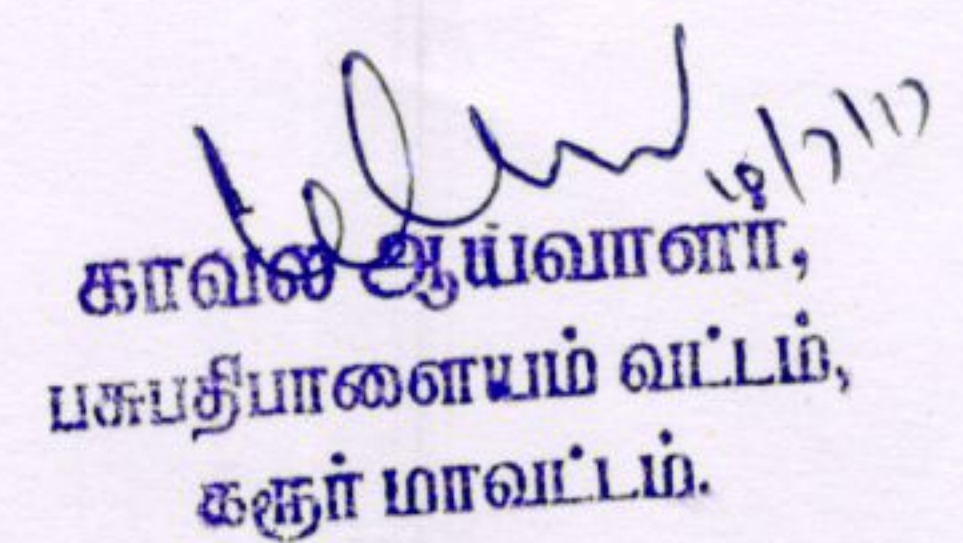 18/7/17
காவல் ஆய்வாளர்,
பசுபதிபாளையம் வட்டம்,
கரூர் மாவட்டம்.